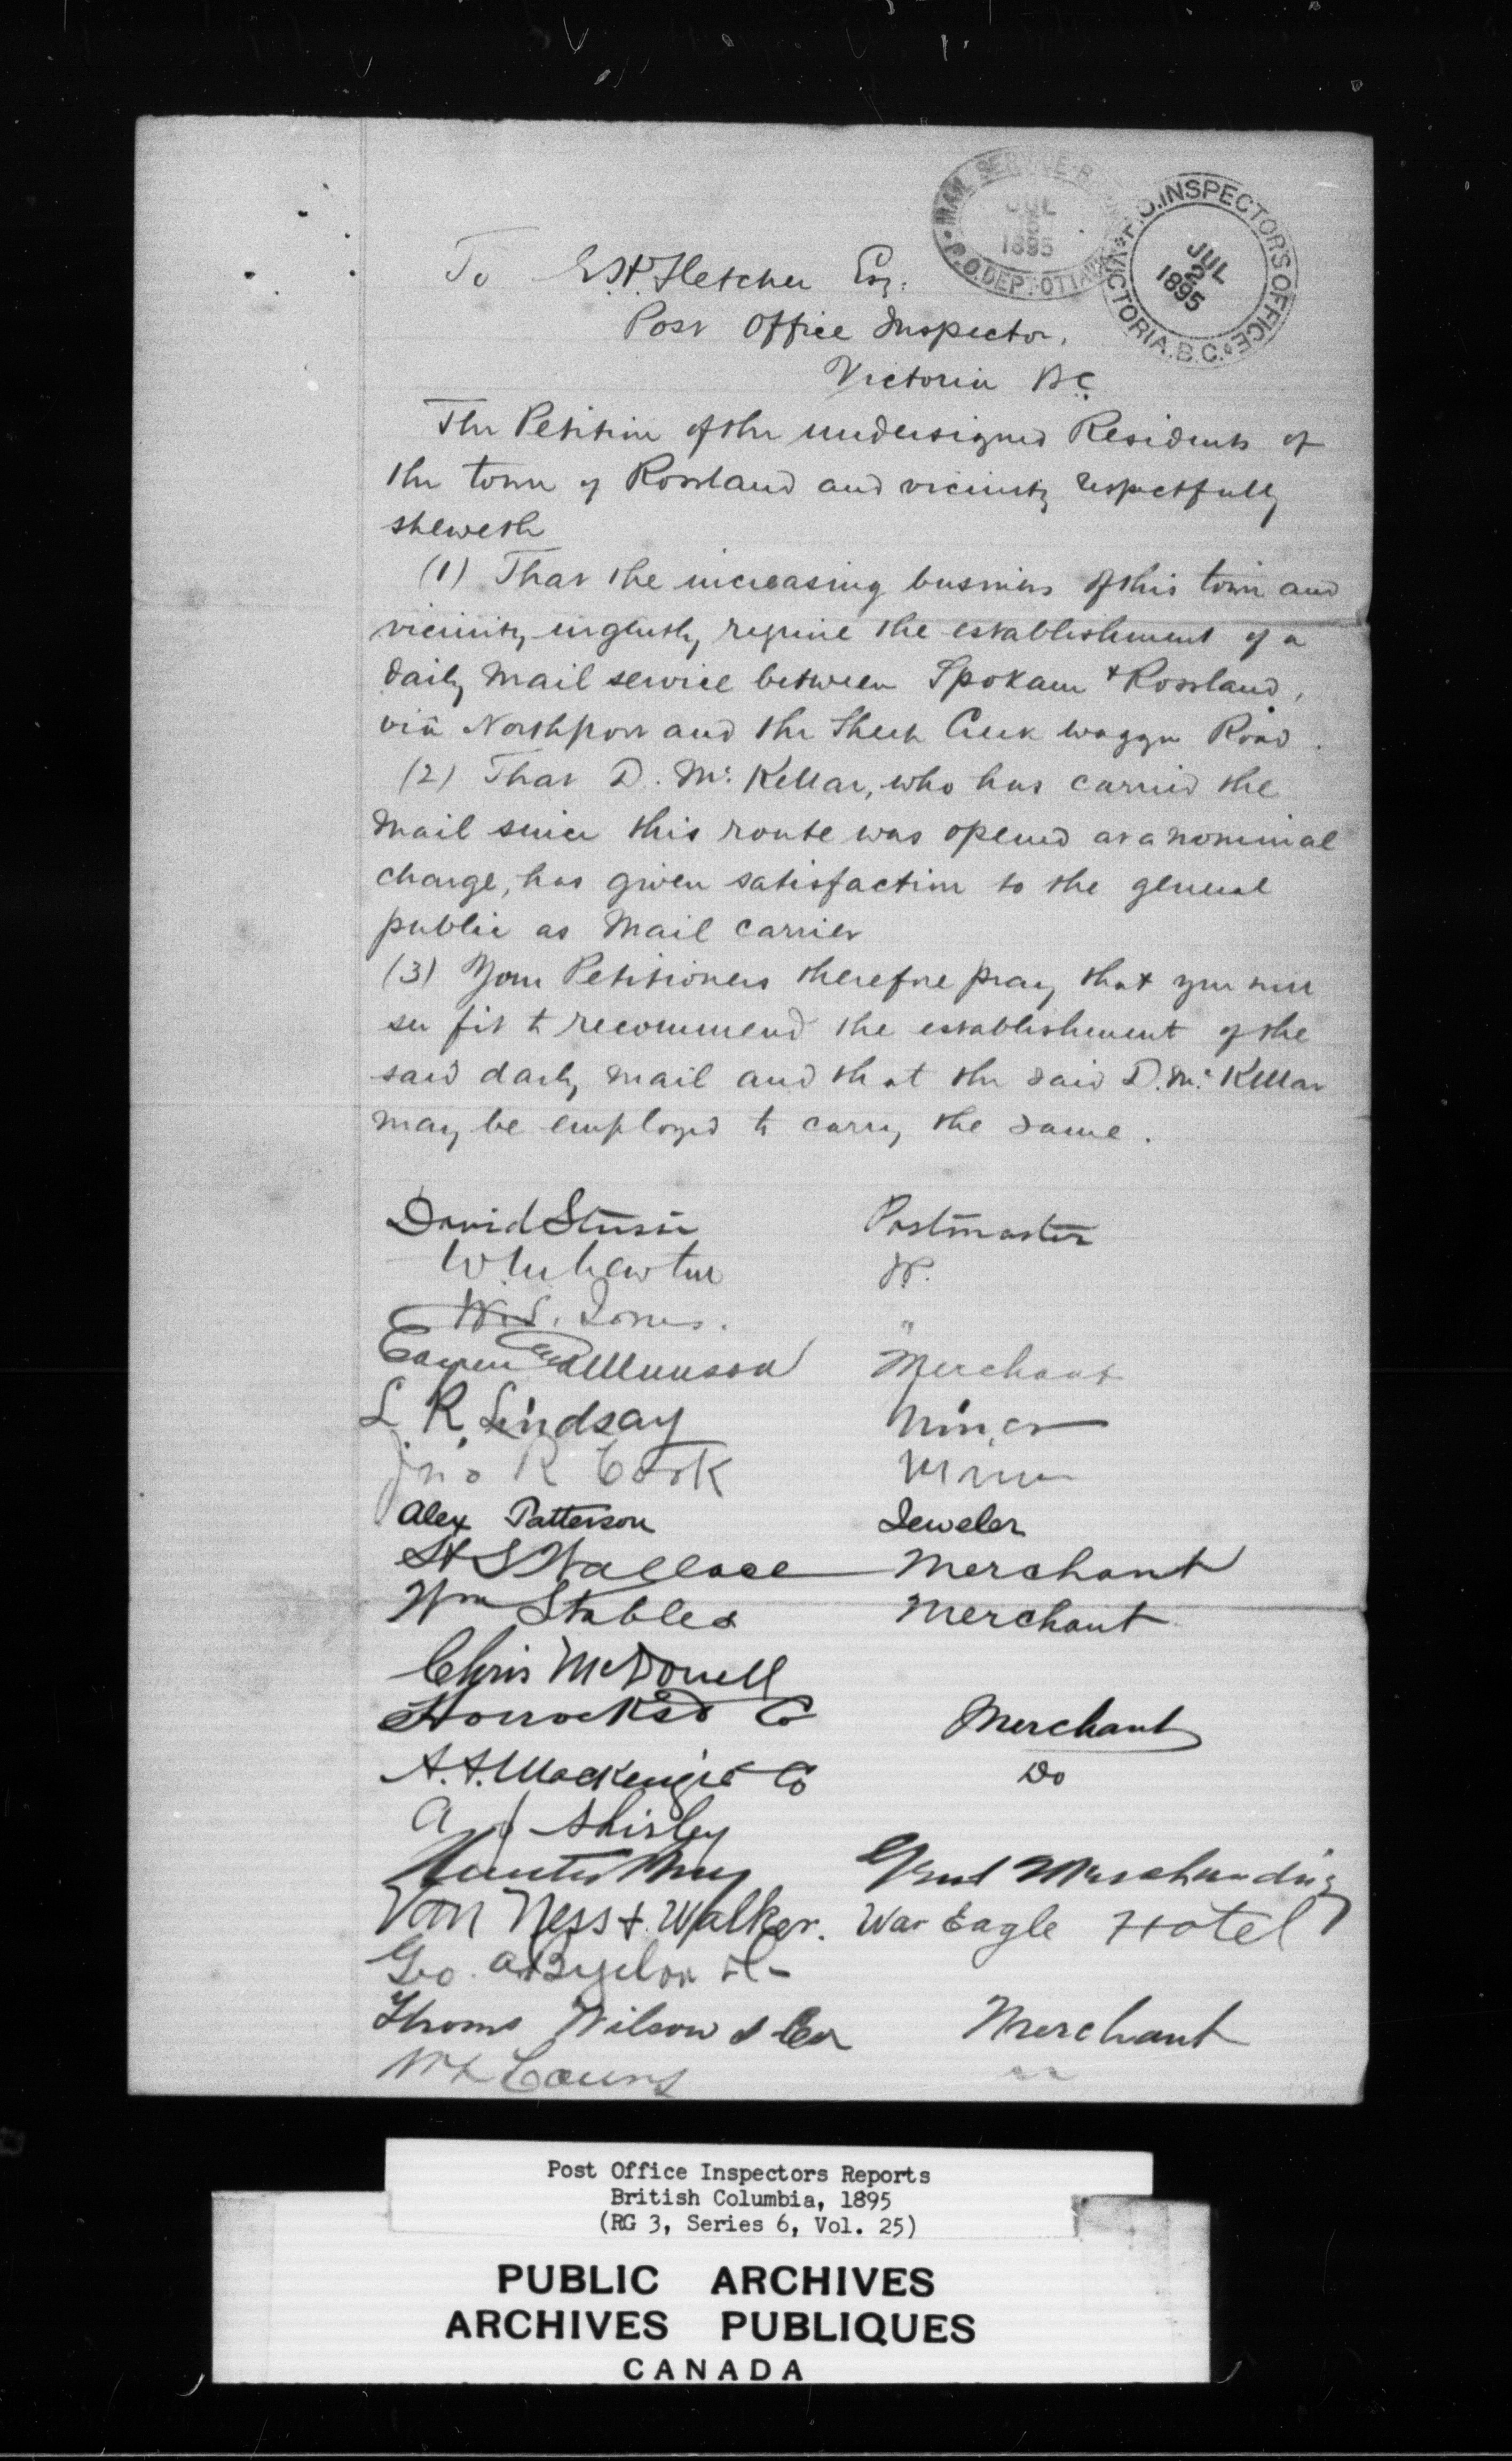 MAIL SERVICE BRANCH
JUL
1895
P.O. DEPT. OTTAWA
P.O. INSPECTORS OFFICE
JUL
2
1895
VICTORIA. B.C.
To E.H. Fletcher Esq.
Post Office Inspector,
Victoria BC
The Petition of the undersigned Residents of
the town of Rossland and vicinity respectfully
sheweth
(1) That the increasing business of this town and
vicinity urgently require the establishment of a
daily mail service between Spokane & Rossland,
via Northport and the Sheep Creek waggon Road.
(2) That D. Mc Kellar, who has carried the
mail since this route was opened at a nominal
charge, has given satisfaction to the general
public as Mail carrier
(3) Your Petitioners therefore pray that you will
see fit to recommend the establishment of the
said daily mail and that the said D. Mc Kellar
may be employed to carry the same.
David Stussi Postmaster
JP.
W. S. Jones. "
Merchant
L R. Lindsay Miner
Jno R Cook Miner
Alex Patterson Jeweler
H S Wallace Merchant
Wm Stables Merchant
Chris McDonell
Horrocks & Co Merchant
A. A. Mackenzie & Co Do
A J Shirley
Hunter Bros Genl Merchandise
Van Ness & Walker. War Eagle Hotel
Geo. A.
Thoms Wilson & Co Merchant
"
Post Office Inspectors Reports
British Columbia, 1895
(RG 3, Series 6, Vol. 25)
PUBLIC ARCHIVES
ARCHIVES PUBLIQUES
CANADA